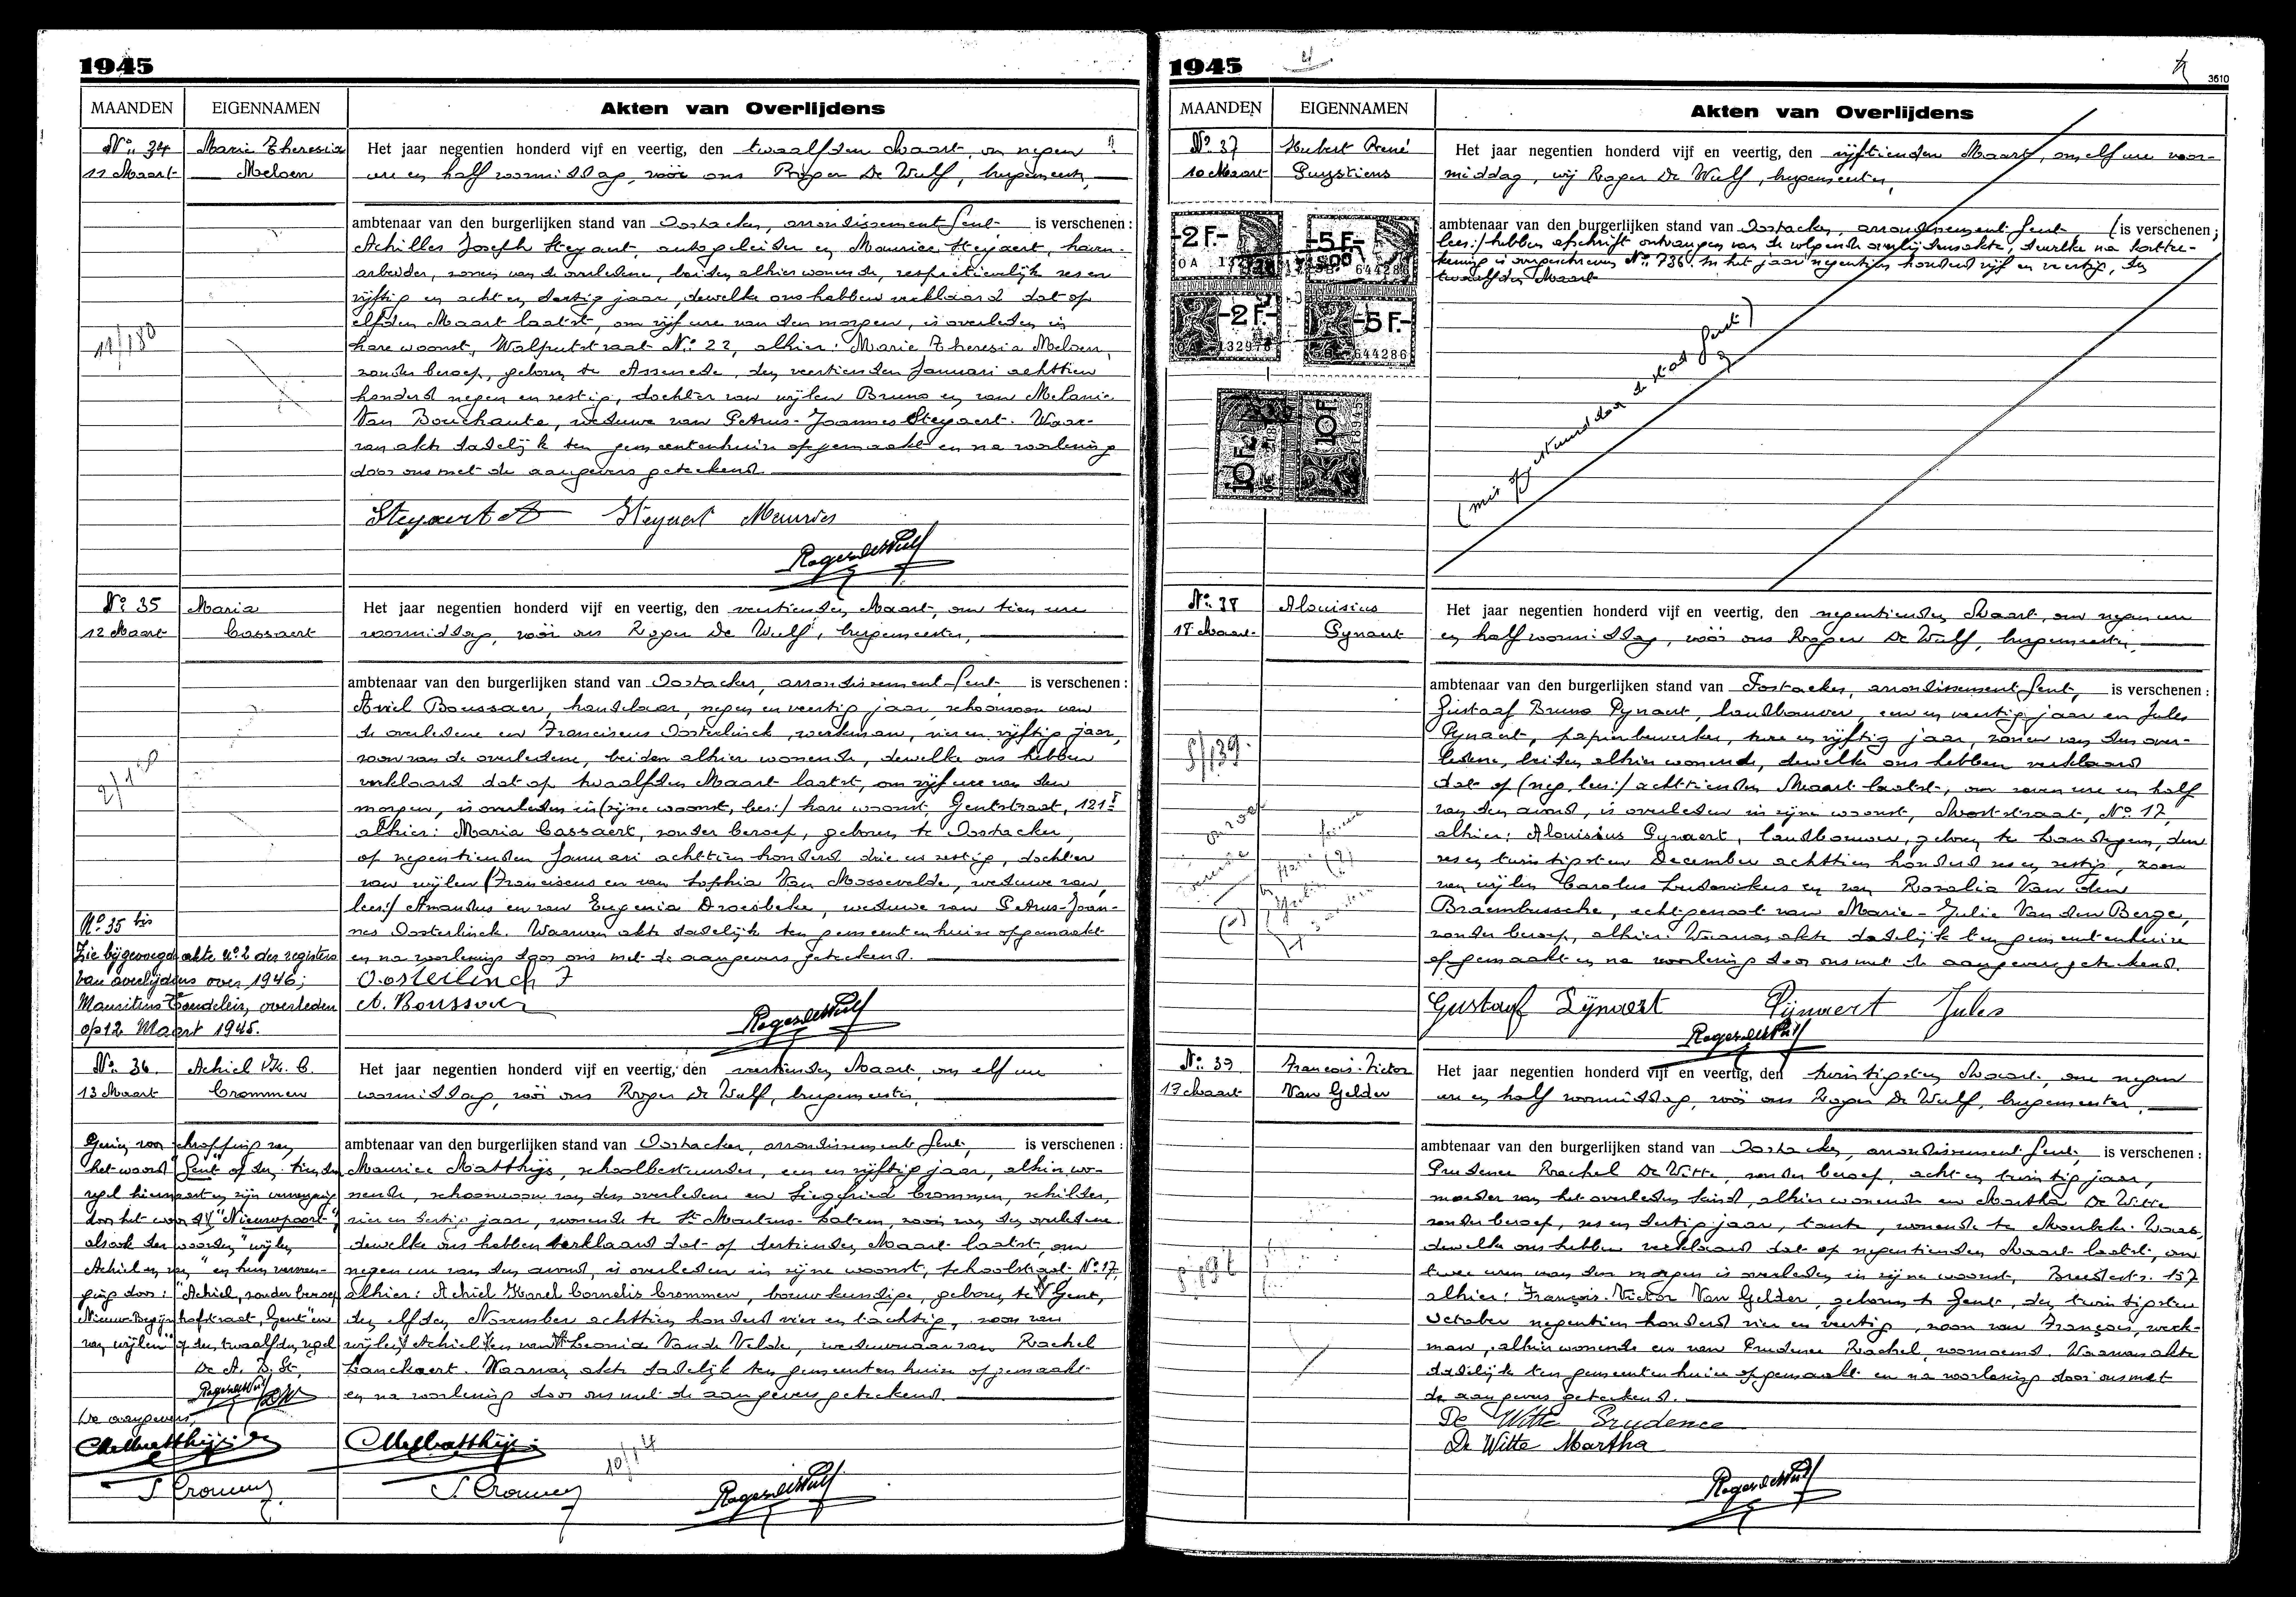 1945
MAANDEN EIGENNAMEN Akten van Overlijdens
No. 34 Marie Theresia Meloen
11 Maart
Het jaar negentien honderd vijf en veertig, den twaalfden Maart, om negen
ure en half voormiddag, vóór ons Roger De Wulf, burgemeester,
ambtenaar van den burgerlijken stand van Oostacker, arrondissement Gent is verschenen:
Achilles Joseph Steyaert, autogeleider en Maurice Steyaert, haven-
arbeider, zonen van de overledene, beiden alhier wonende, respectievelijk zes en
vijftig en acht en dertig jaar, dewelke ons hebben verklaard dat op
elfden Maart laatst, om vijf ure van den morgen, is overleden in
hare woonst, Walputstraat No. 22, alhier: Marie Theresia Meloen,
zonder beroep, geboren te Assenede, den veertienden Januari achttien
honderd negen en zestig, dochter van wijlen Bruno en van Melanie
Van Bouchaute, weduwe van Petrus-Joannes Steyaert. Waar-
van akte dadelijk ten gemeentenhuize opgemaakt en na voorlezing
door ons met de aangevers geteekend.
11/180
Steyaert A Steyaert Maurice
Roger De Wulf
No. 35 Maria Cassaert
12 Maart
Het jaar negentien honderd vijf en veertig, den veertienden Maart, om tien ure
voormiddag, vóór ons Roger De Wulf, burgemeester,
ambtenaar van den burgerlijken stand van Oostacker, arrondissement Gent, is verschenen:
Aviel Boussaer, handelaar, negen en veertig jaar, schoonzoon van
de overledene en Franciscus Oosterlinck, werkman, vier en vijftig jaar,
zoon van de overledene, beiden alhier wonende, dewelke ons hebben
verklaard dat op twaalfden Maart laatst, om vijf ure van den
morgen, is overleden in (zijne woonst, lees:) hare woonst, Gentstraat, 121
alhier: Maria Cassaert, zonder beroep, geboren te Oostacker,
op negentienden Januari achttien honderd drie en zestig, dochter
van wijlen (Franciscus en van Sophia Van Mossevelde, weduwe van,
lees:) Amandus en van Eugenia Droesbeke, weduwe van Petrus-Joan-
nes Oosterlinck. Waarvan akte dadelijk ten gemeentenhuize opgemaakt
en na voorlezing door ons met de aangevers geteekend.
Oosterlinck F
A. Boussaer
Roger De Wulf
No. 35 bis
Zie bijgevoegde akte No. 2 der registers
van overlijdens over 1946;
Mauritius Coudeleir, overleden
op 12 Maart 1945.
No. 36 Achiel K. C. Crommen
13 Maart
Het jaar negentien honderd vijf en veertig, den veertienden Maart, om elf ure
voormiddag, vóór ons Roger De Wulf, burgemeester,
ambtenaar van den burgerlijken stand van Oostacker, arrondissement Gent, is verschenen:
Maurice Matthijs, schoolbestuurder, een en vijftig jaar, alhier wo-
nende, schoonzoon van den overledene en Siegfried Crommen, schilder,
vier en dertig jaar, wonende te St Martens-Latem, zoon van den overledene
dewelke ons hebben verklaard dat op dertienden Maart laatst, om
negen ure van den avond, is overleden in zijne woonst, Schoolstraat No 17,
alhier: Achiel Karel Cornelis Crommen, bouwkundige, geboren te Gent,
den elfden November achttien honderd vier en tachtig, zoon van
wijlen Achiel en van Leonia Vande Velde, weduwnaar van Rachel
Lanckaert. Waarvan akte dadelijk ten gemeentenhuize opgemaakt
en na voorlezing door ons met de aangevers geteekend.
het woord "Gent" op den tienden
regel hiernaast en zijn vervanging
door het woord "Nieuwpoort"
alsook der woorden "wijlen
Achiel en van" en hun vervan-
ging door: "Achiel, zonder beroep
Nieuw Begijnhofstraat, Gent" en
van wijlen" op den twaalfden regel
De A. B. St,
Roger De Wulf
De aangevers,
M Matthijs
S Crommen
M Matthijs
S Crommen
10/14
Roger De Wulf
1945
3610
MAANDEN EIGENNAMEN Akten van Overlijdens
No. 37 Hubert René Puystiens
10 Maart
Het jaar negentien honderd vijf en veertig, den vijftienden Maart, om elf ure voor-
middag, wij Roger De Wulf, burgemeester,
ambtenaar van den burgerlijken stand van Oostacker, arrondissement Gent, (is verschenen;
lees:) hebben afschrift ontvangen van de volgende overlijdensakte, dewelke na kortte-
kening is overgeschreven No. 736. In het jaar negentien honderd vijf en veertig, den
twaalfden Maart
-2 F.- -5 F.-
-2 F.- -5 F.-
132978 644286
10 F 10 F
(mis opgestuurd door de stad Gent)
No. 38 Alouisius Pynaert
18 Maart
Het jaar negentien honderd vijf en veertig, den negentienden Maart, om negen ure
en half voormiddag, vóór ons Roger De Wulf, burgemeester,
ambtenaar van den burgerlijken stand van Oostacker, arrondissement Gent, is verschenen:
Gustaaf Bruno Pynaert, landbouwer, een en veertig jaar en Jules
Pynaert, papierbewerker, twee en vijftig jaar, zonen van den over-
ledene, beiden alhier wonende, dewelke ons hebben verklaard
dat op (neg, lees:) achttienden Maart laatst, om zeven ure en half
van den avond, is overleden in zijne woonst, Moststraat, No 17,
alhier: Alouisius Pynaert, landbouwer, geboren te Landegem, den
zes en twintigsten December achttien honderd zes en zestig, zoon
van wijlen Carolus Ludovikus en van Rozalia Van den
Braembussche, echtgenoot van Marie-Julie Van den Berge,
zonder beroep, alhier. Waarvan akte dadelijk ten gemeentenhuize
opgemaakt en na voorlezing door ons met de aangevers geteekend.
Gustaaf Pijnaert Pijnaert Jules
Roger De Wulf
No. 39 François-Victor Van Gelder
19 Maart
Het jaar negentien honderd vijf en veertig, den twintigsten Maart, om negen
ure en half voormiddag, vóór ons Roger De Wulf, burgemeester,
ambtenaar van den burgerlijken stand van Oostacker, arrondissement Gent, is verschenen:
Prudence Rachel De Witte, zonder beroep, acht en twintig jaar,
moeder van het overleden kind, alhier wonende en Martha De Witte
zonder beroep, zes en dertig jaar, tante, wonende te Moerbeke-Waas,
dewelke ons hebben verklaard dat op negentienden Maart laatst, om
twee uren van den morgen is overleden in zijne woonst, Breedestr. 157
alhier: François-Victor Van Gelder, geboren te Gent, den twintigsten
October negentien honderd vier en veertig, zoon van François, werk-
man, alhier wonende en van Prudence Rachel, voornoemd. Waarvan akte
dadelijk ten gemeentenhuize opgemaakt en na voorlezing door ons met
de aangevers geteekend.
De Witte Prudence
De Witte Martha
Roger De Wulf